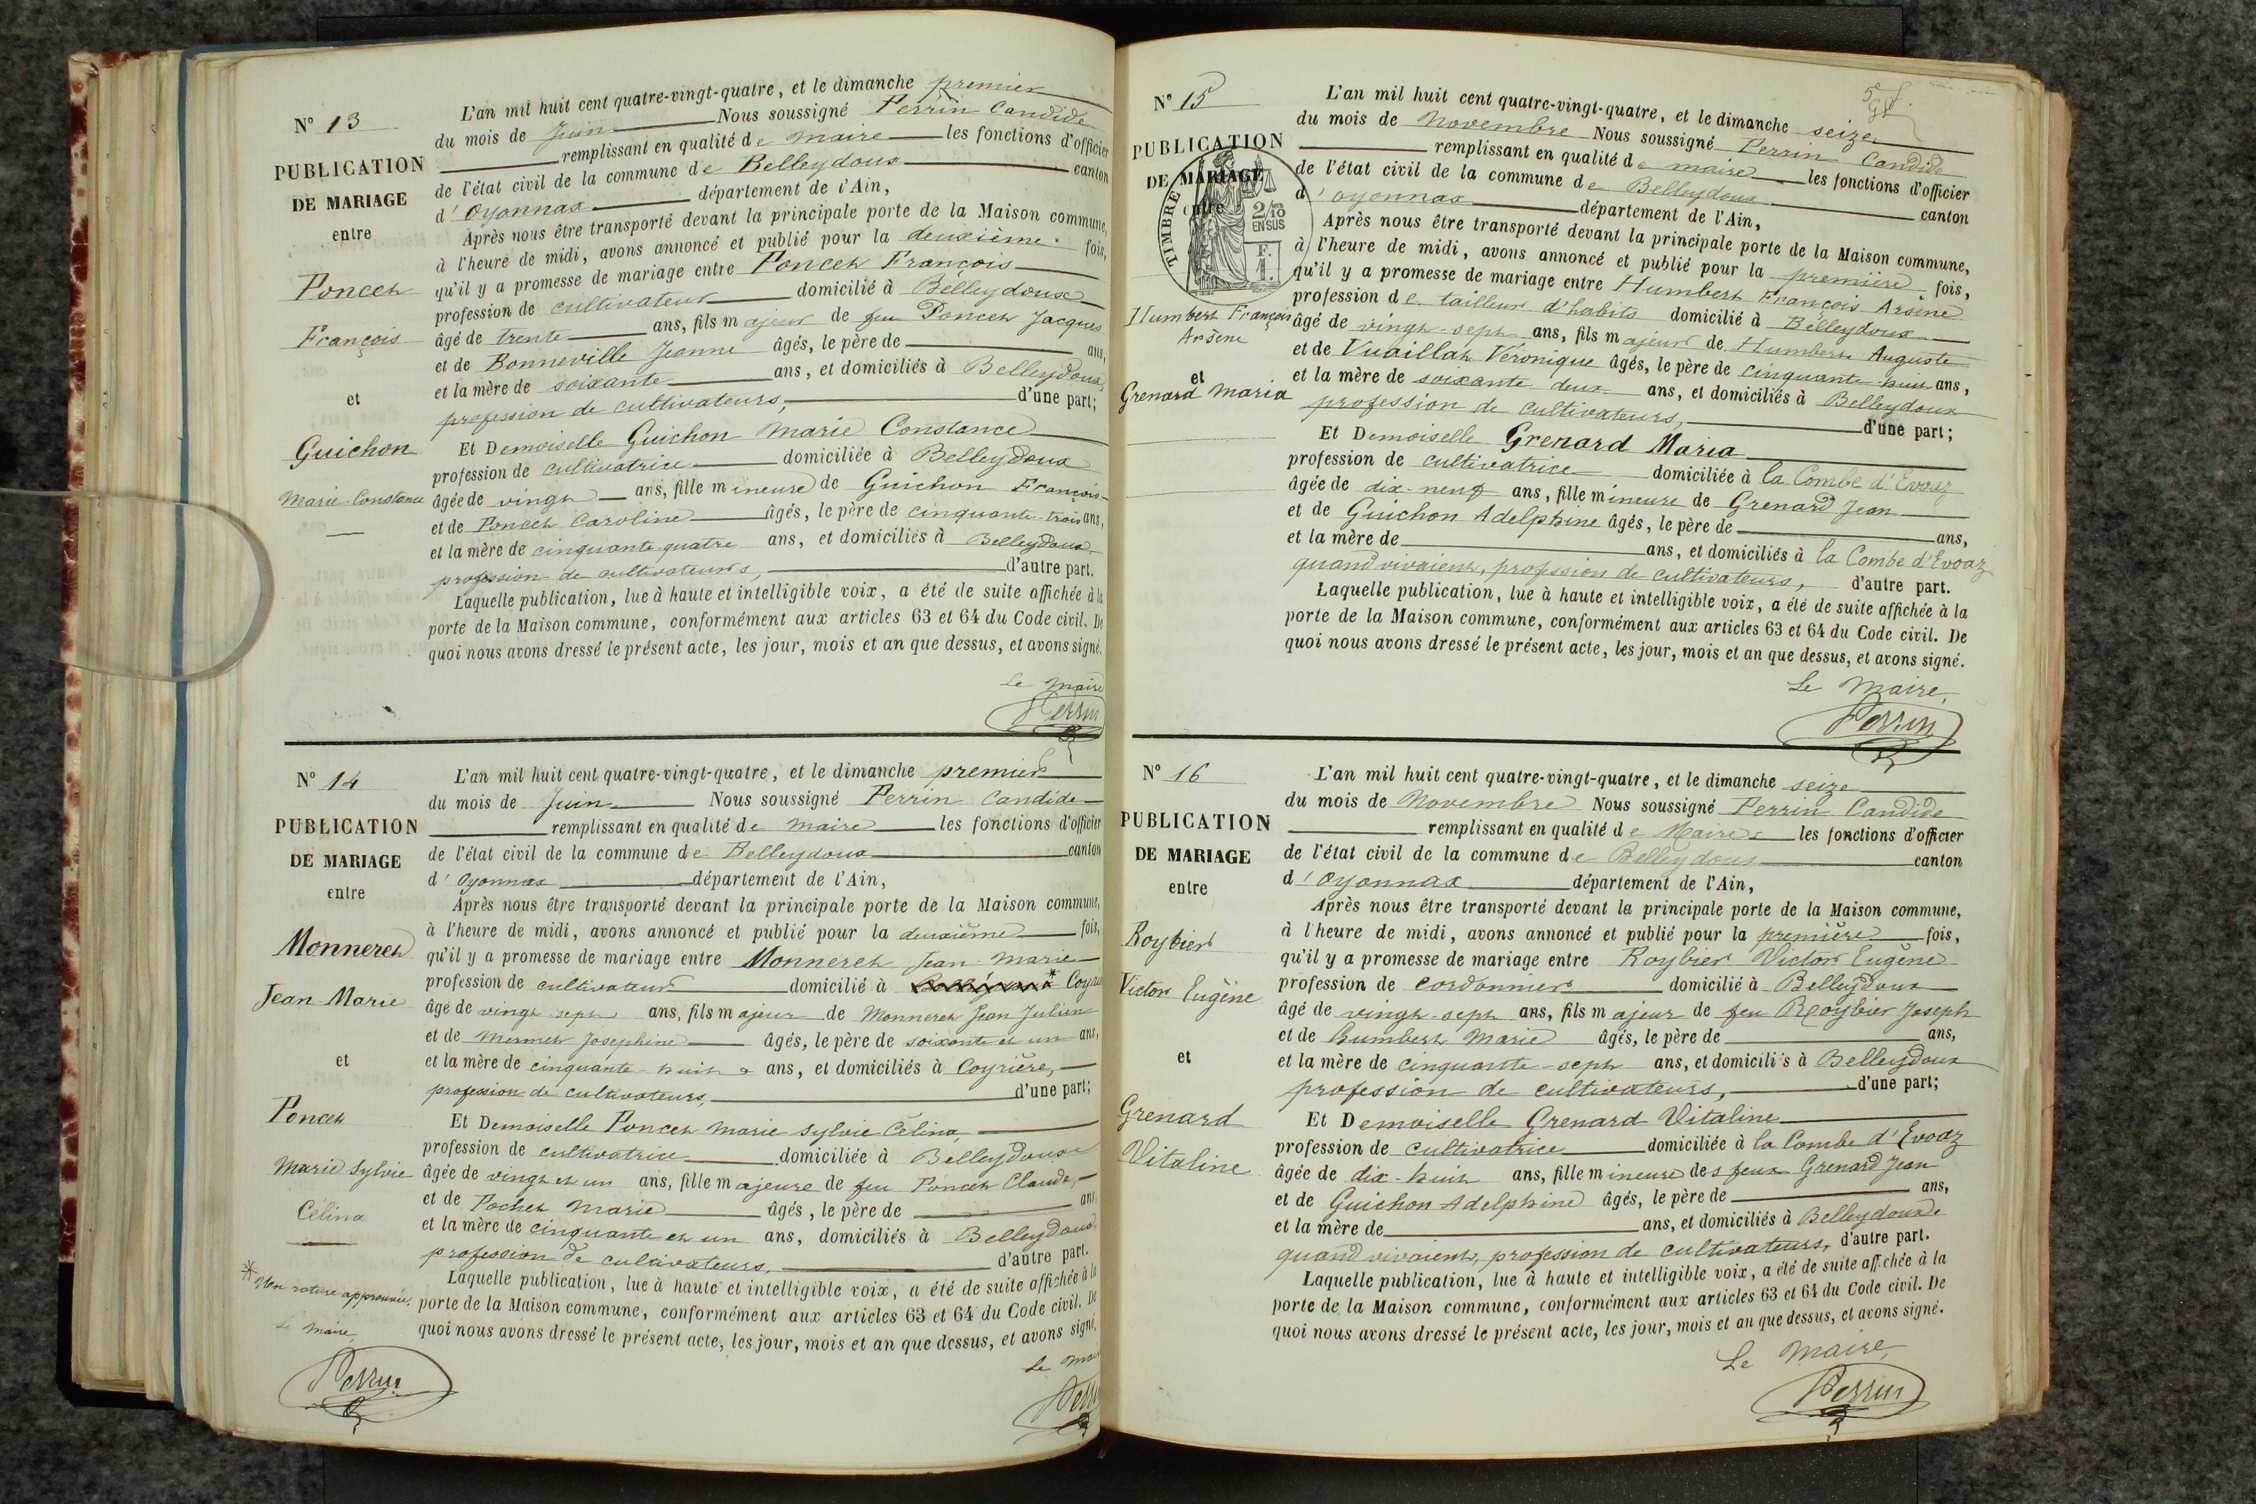 N° 13
PUBLICATION
DE MARIAGE
entre
Poncet
François
et
Guichon
Marie-Constance
L'an mil huit cent quatre-vingt-quatre, et le dimanche premier
du mois de Juin Nous soussigné Perrin Candide
remplissant en qualité de maire les fonctions d'officier
de l'état civil de la commune de Belleydoux canton
d'Oyonnax département de l'Ain,
Après nous être transporté devant la principale porte de la Maison commune,
à l'heure de midi, avons annoncé et publié pour la deuxième fois,
qu'il y a promesse de mariage entre Poncet François
profession de cultivateur domicilié à Belleydoux
âgé de trente ans, fils majeur de feu Poncet Jacques
et de Bonneville Jeanne âgés, le père de ans,
et la mère de soixante ans, et domiciliés à Belleydoux,
profession de cultivateurs, d'une part;
Et Demoiselle Guichon Marie Constance
profession de cultivatrice domiciliée à Belleydoux
âgée de vingt ans, fille mineure de Guichon François
et de Poncet Caroline âgés, le père de cinquante-trois ans,
et la mère de cinquante quatre ans, et domiciliés à Belleydoux
profession de cultivateurs, d'autre part.
Laquelle publication, lue à haute et intelligible voix, a été de suite affichée à la
porte de la Maison commune, conformément aux articles 63 et 64 du Code civil. De
quoi nous avons dressé le présent acte, les jour, mois et an que dessus, et avons signé.
Le Maire
Perrin
N° 14
PUBLICATION
DE MARIAGE
entre
Monneret
Jean Marie
et
Poncet
Marie Sylvie
Célina
* Mon rature approuvée.
Le Maire,
Perrin
L'an mil huit cent quatre-vingt-quatre, et le dimanche premier
du mois de Juin Nous soussigné Perrin Candide
remplissant en qualité de maire les fonctions d'officier
de l'état civil de la commune de Belleydoux canton
d'Oyonnax département de l'Ain,
Après nous être transporté devant la principale porte de la Maison commune,
à l'heure de midi, avons annoncé et publié pour la deuxième fois,
qu'il y a promesse de mariage entre Monneret Jean-Marie
profession de cultivateur domicilié à *
âgé de vingt-sept ans, fils majeur de Monneret Jean Julien
et de Mermet Josephine âgés, le père de soixante et un ans,
et la mère de cinquante-huit ans, et domiciliés à Coyrière,
profession de cultivateurs, d'une part;
Et Demoiselle Poncet Marie Sylvie Célina,
profession de cultivatrice domiciliée à Belleydoux
âgée de vingt et un ans, fille majeure de feu Poncet Claude,
et de Pochet Marie âgés, le père de ans,
et la mère de cinquante et un ans, domiciliés à Belleydoux
profession de cultivateurs, d'autre part.
Laquelle publication, lue à haute et intelligible voix, a été de suite affichée à la
porte de la Maison commune, conformément aux articles 63 et 64 du Code civil. De
quoi nous avons dressé le présent acte, les jour, mois et an que dessus, et avons signé.
Le
N° 15
PUBLICATION
DE MARIAGE
entre
TIMBRE
2/10
EN SUS
F.
1.
Humbert François
Arsène
et
Grenard Maria
L'an mil huit cent quatre-vingt-quatre, et le dimanche seize
du mois de Novembre Nous soussigné Perrin Candide
remplissant en qualité de maire les fonctions d'officier
de l'état civil de la commune de Belleydoux canton
d'Oyonnax département de l'Ain,
Après nous être transporté devant la principale porte de la Maison commune,
à l'heure de midi, avons annoncé et publié pour la première fois,
qu'il y a promesse de mariage entre Humbert François Arsène
profession de tailleur d'habits domicilié à Belleydoux
âgé de vingt-sept ans, fils majeur de Humbert Auguste
et de Vuaillat Véronique âgés, le père de cinquante-huit ans,
et la mère de soixante deux ans, et domiciliés à Belleydoux
profession de cultivateurs, d'une part;
Et Demoiselle Grenard Maria
profession de cultivatrice domiciliée à la Combe d'Evoaz
âgée de dix-neuf ans, fille mineure de Grenard Jean
et de Guichon Adelphine âgés, le père de ans,
et la mère de ans, et domiciliés à la Combe d'Evoaz
quand vivaient, profession de cultivateurs, d'autre part.
Laquelle publication, lue à haute et intelligible voix, a été de suite affichée à la
porte de la Maison commune, conformément aux articles 63 et 64 du Code civil. De
quoi nous avons dressé le présent acte, les jour, mois et an que dessus, et avons signé.
Le Maire,
Perrin
N° 16
PUBLICATION
DE MARIAGE
entre
Roybier
Victor Eugène
et
Grenard
Vitaline
L'an mil huit cent quatre-vingt-quatre, et le dimanche seize
du mois de Novembre Nous soussigné Perrin Candide
remplissant en qualité de Maire les fonctions d'officier
de l'état civil de la commune de Belleydoux canton
d'Oyonnax département de l'Ain,
Après nous être transporté devant la principale porte de la Maison commune,
à l'heure de midi, avons annoncé et publié pour la première fois,
qu'il y a promesse de mariage entre Roybier Victor Eugène
profession de cordonnier domicilié à Belleydoux
âgé de vingt-sept ans, fils majeur de feu Roybier Joseph
et de humbert Marie âgés, le père de ans,
et la mère de cinquante-sept ans, et domiciliés à Belleydoux
profession de cultivateurs, d'une part;
Et Demoiselle Grenard Vitaline
profession de cultivatrice domiciliée à la Combe d'Evoaz
âgée de dix-huit ans, fille mineure des feux Grenard Jean
et de Guichon Adelphine âgés, le père de ans,
et la mère de ans, et domiciliés à Belleydoux
quand vivaient, profession de cultivateurs, d'autre part.
Laquelle publication, lue à haute et intelligible voix, a été de suite affichée à la
porte de la Maison commune, conformément aux articles 63 et 64 du Code civil. De
quoi nous avons dressé le présent acte, les jour, mois et an que dessus, et avons signé.
Le Maire,
Perrin